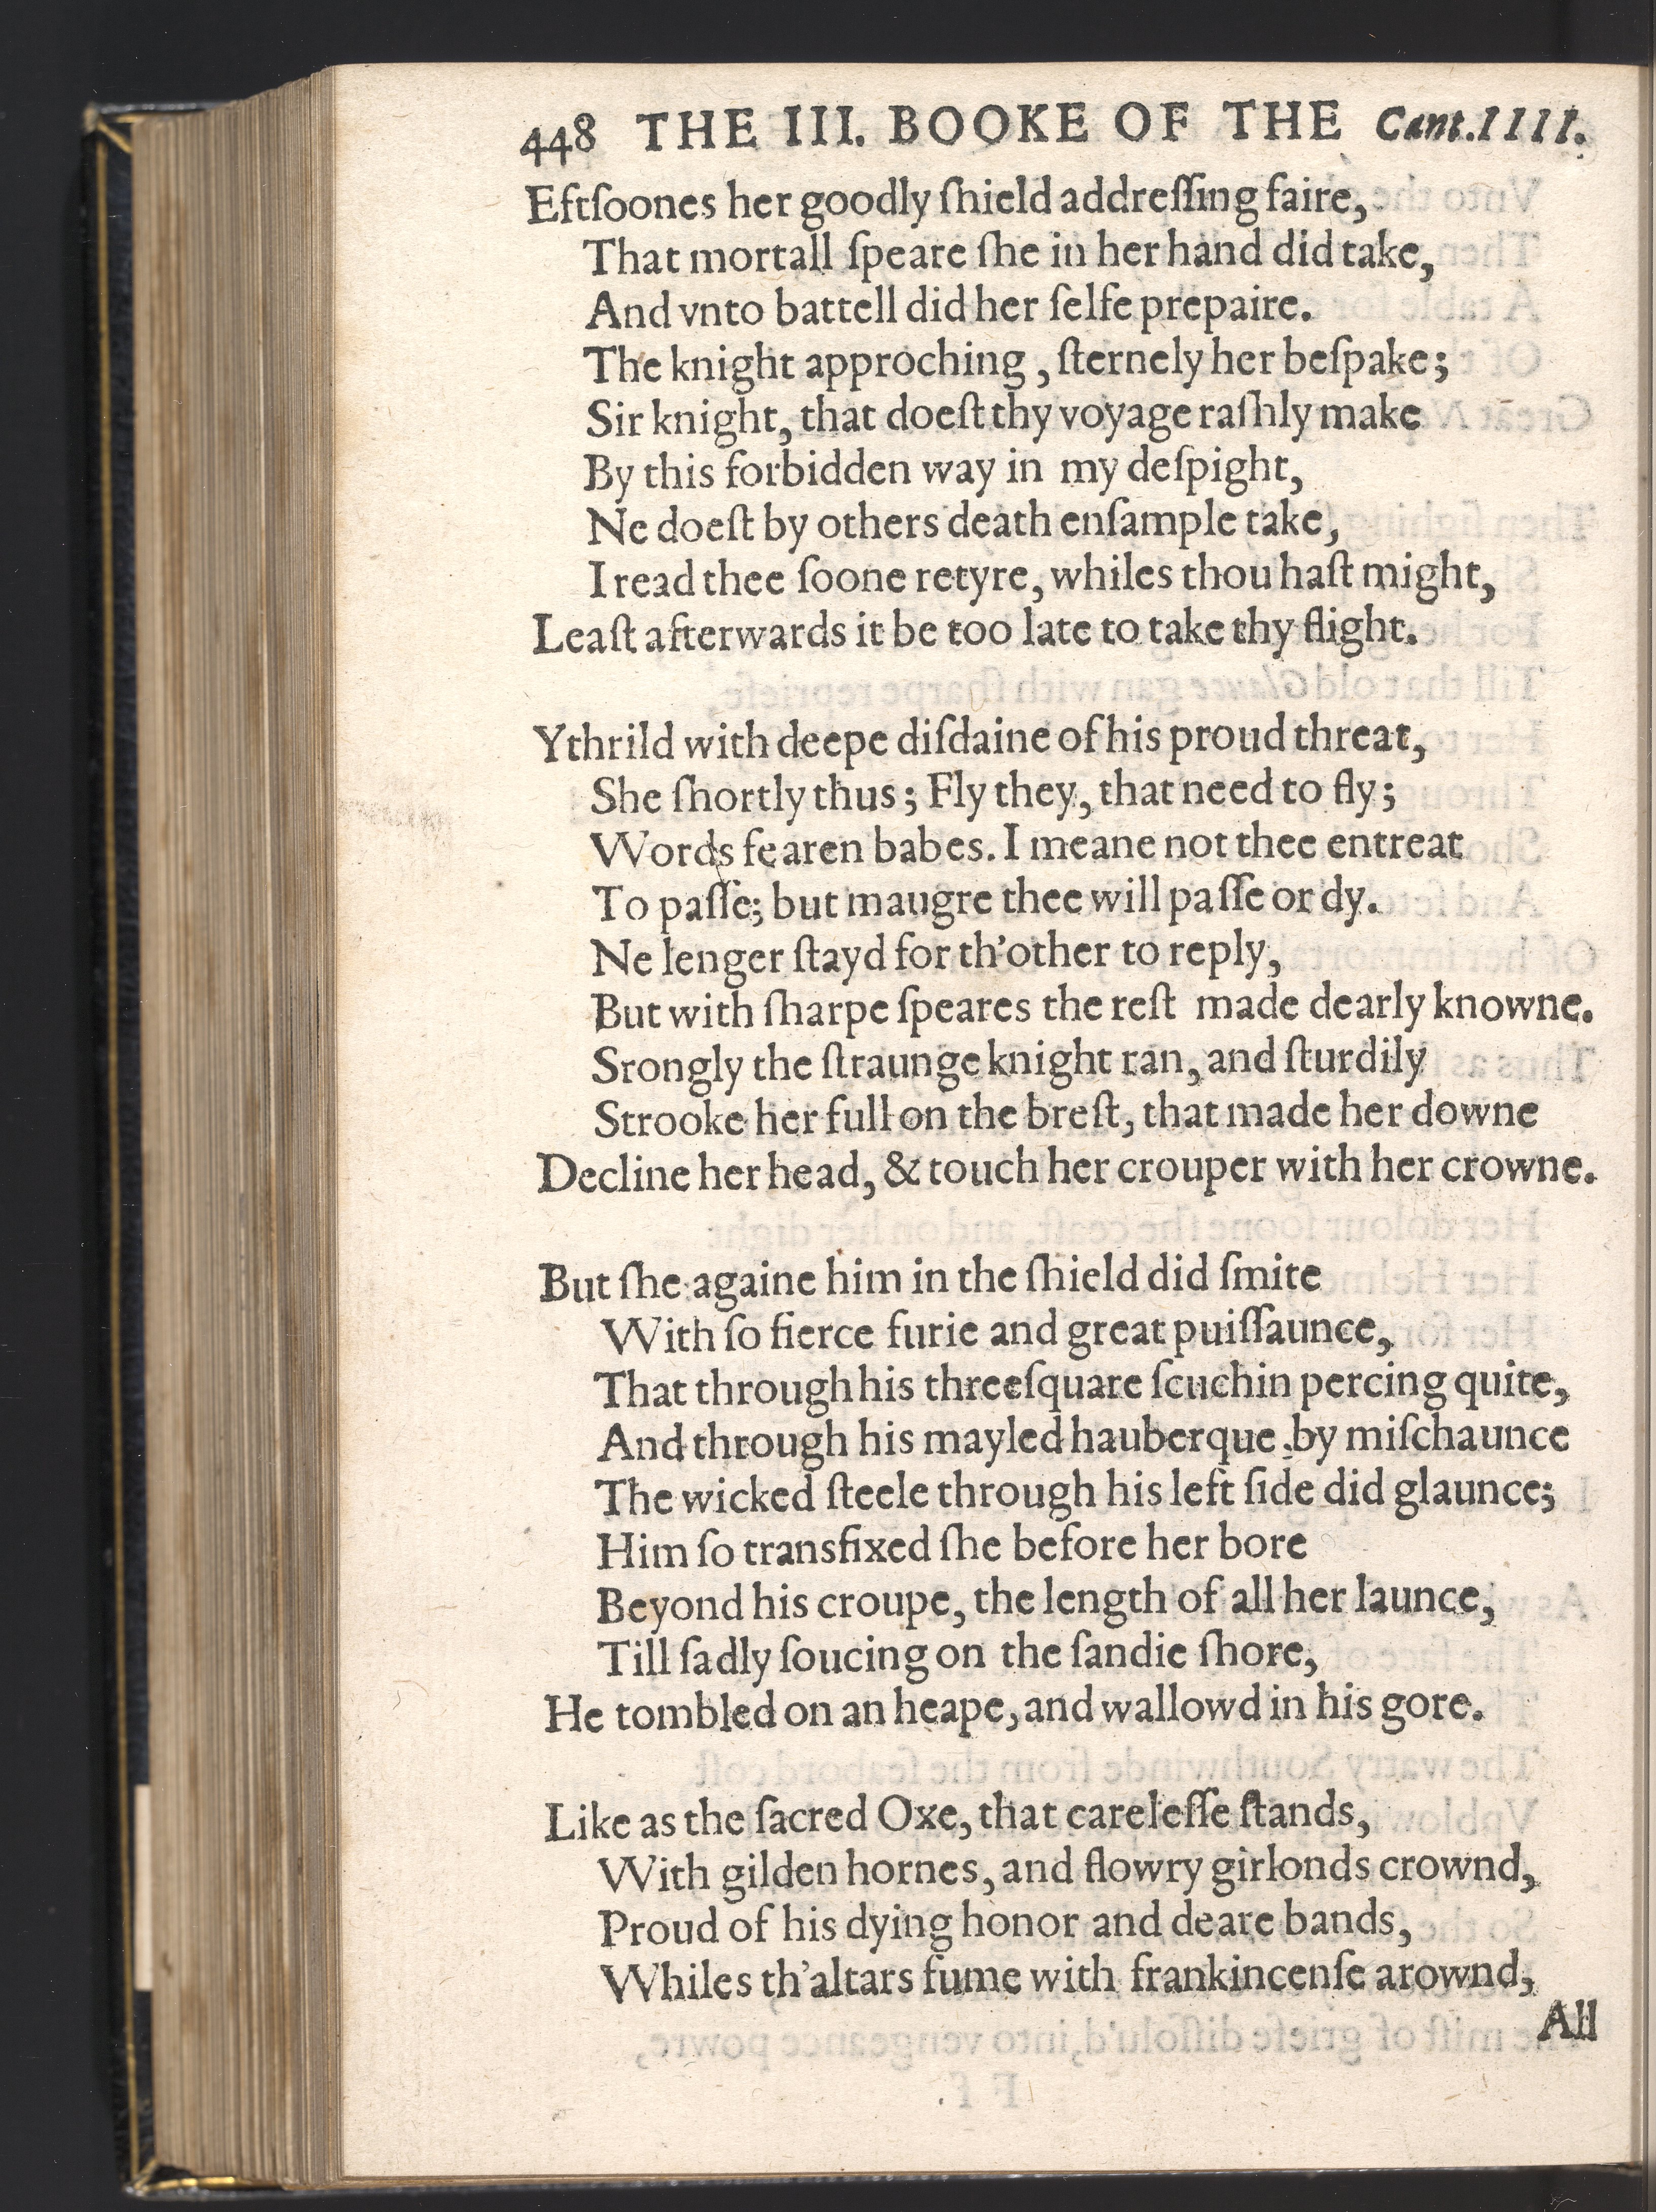 448 THE III. BOOKE OF THE Cant.IIII.
Eftſoones her goodly ſhield addreſſing faire,
That mortall ſpeare ſhe in her hand did take,
And vnto battell did her ſelfe prepaire.
The knight approching, ſternely her beſpake;
Sir knight, that doeſt thy voyage raſhly make
By this forbidden way in my deſpight,
Ne doeſt by others death enſample take,
I read thee ſoone retyre, whiles thou haſt might,
Leaſt afterwards it be too late to take thy flight.
Ythrild with deepe diſdaine of his proud threat,
She ſhortly thus; Fly they, that need to fly;
Words fearen babes. I meane not thee entreat
To paſſe; but maugre thee will paſſe or dy.
Ne lenger ſtayd for th'other to reply,
But with ſharpe ſpeares the reſt made dearly knowne.
Srongly the ſtraunge knight ran, and ſturdily
Strooke her full on the breſt, that made her downe
Decline her head, & touch her crouper with her crowne.
But ſhe againe him in the ſhield did ſmite
With ſo fierce furie and great puiſſaunce,
That through his threeſquare ſcuchin percing quite,
And through his mayled hauberque, by miſchaunce
The wicked ſteele through his left ſide did glaunce;
Him ſo transfixed ſhe before her bore
Beyond his croupe, the length of all her launce,
Till ſadly ſoucing on the ſandie ſhore,
He tombled on an heape, and wallowd in his gore.
Like as the ſacred Oxe, that careleſſe ſtands,
With gilden hornes, and flowry girlonds crownd,
Proud of his dying honor and deare bands,
Whiles th'altars fume with frankincenſe arownd,
All